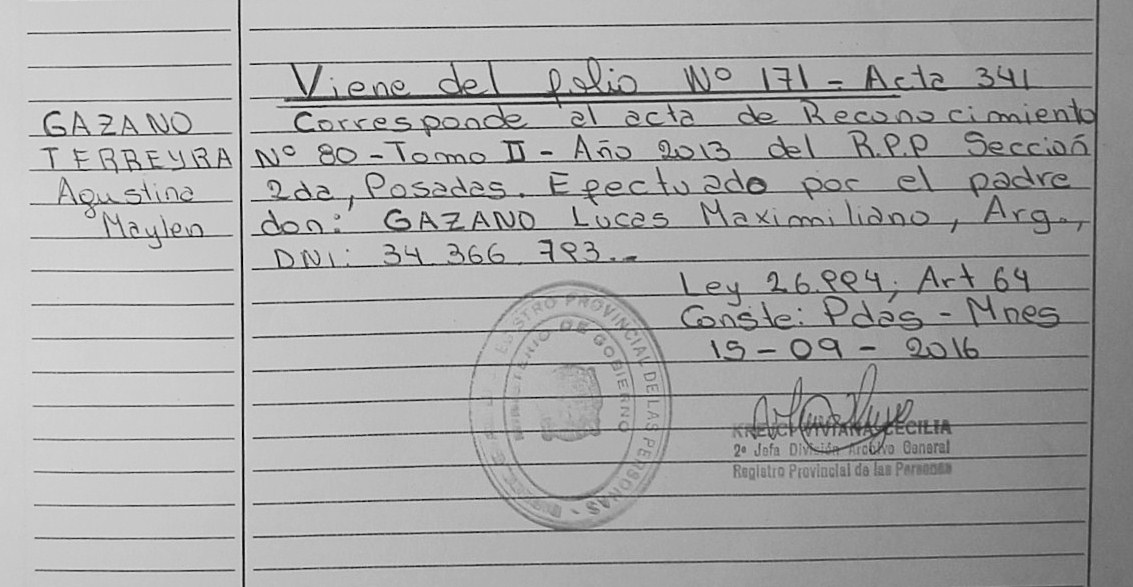 Viene del folio Nº 171 - Acta 341
GAZANO
TERREYRA
Agustina
Maylen
Corresponde al acta de Reconocimiento
Nº 80 - Tomo II - Año 2013 del R.P.P Sección
2da, Posadas. Efectuado por el padre
don: GAZANO Lucas Maximiliano, Arg.,
DNI: 34 366 793.-
Ley 26.994; Art 64
Conste: Pdas - Mnes
15-09-2016
REGISTRO PROVINCIAL DE LAS PERSONAS
MINISTERIO DE GOBIERNO
VIVIANA CECILIA
2º Jefa División Archivo General
Registro Provincial de las Personas